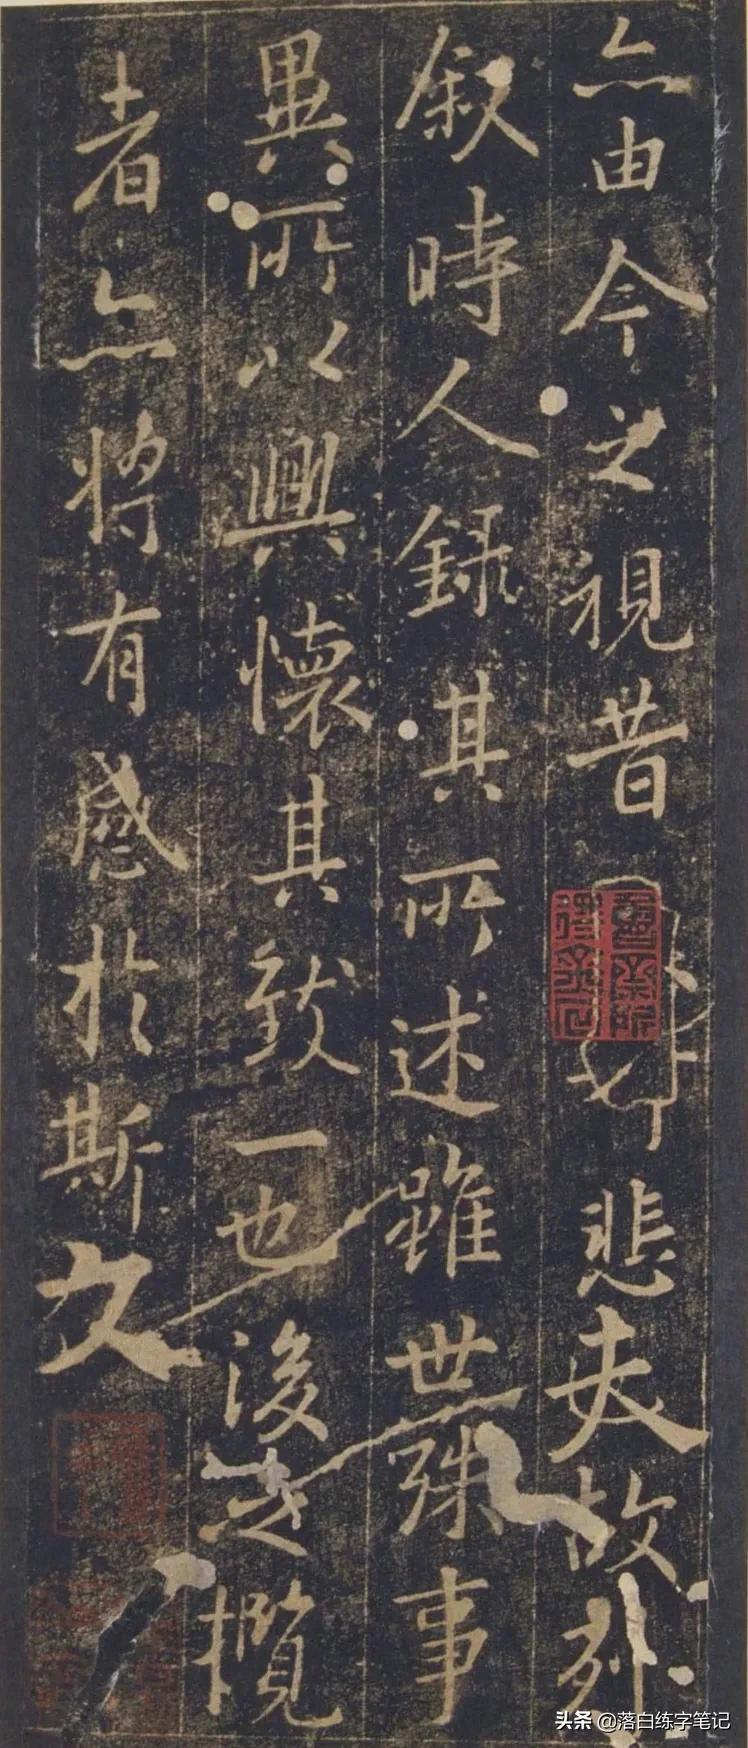 亦由今之視昔悲夫故列
叙時人録其所述雖世殊事
異所以興懷其致一也後之攬
者亦將有感於斯文
头条 @落白练字笔记